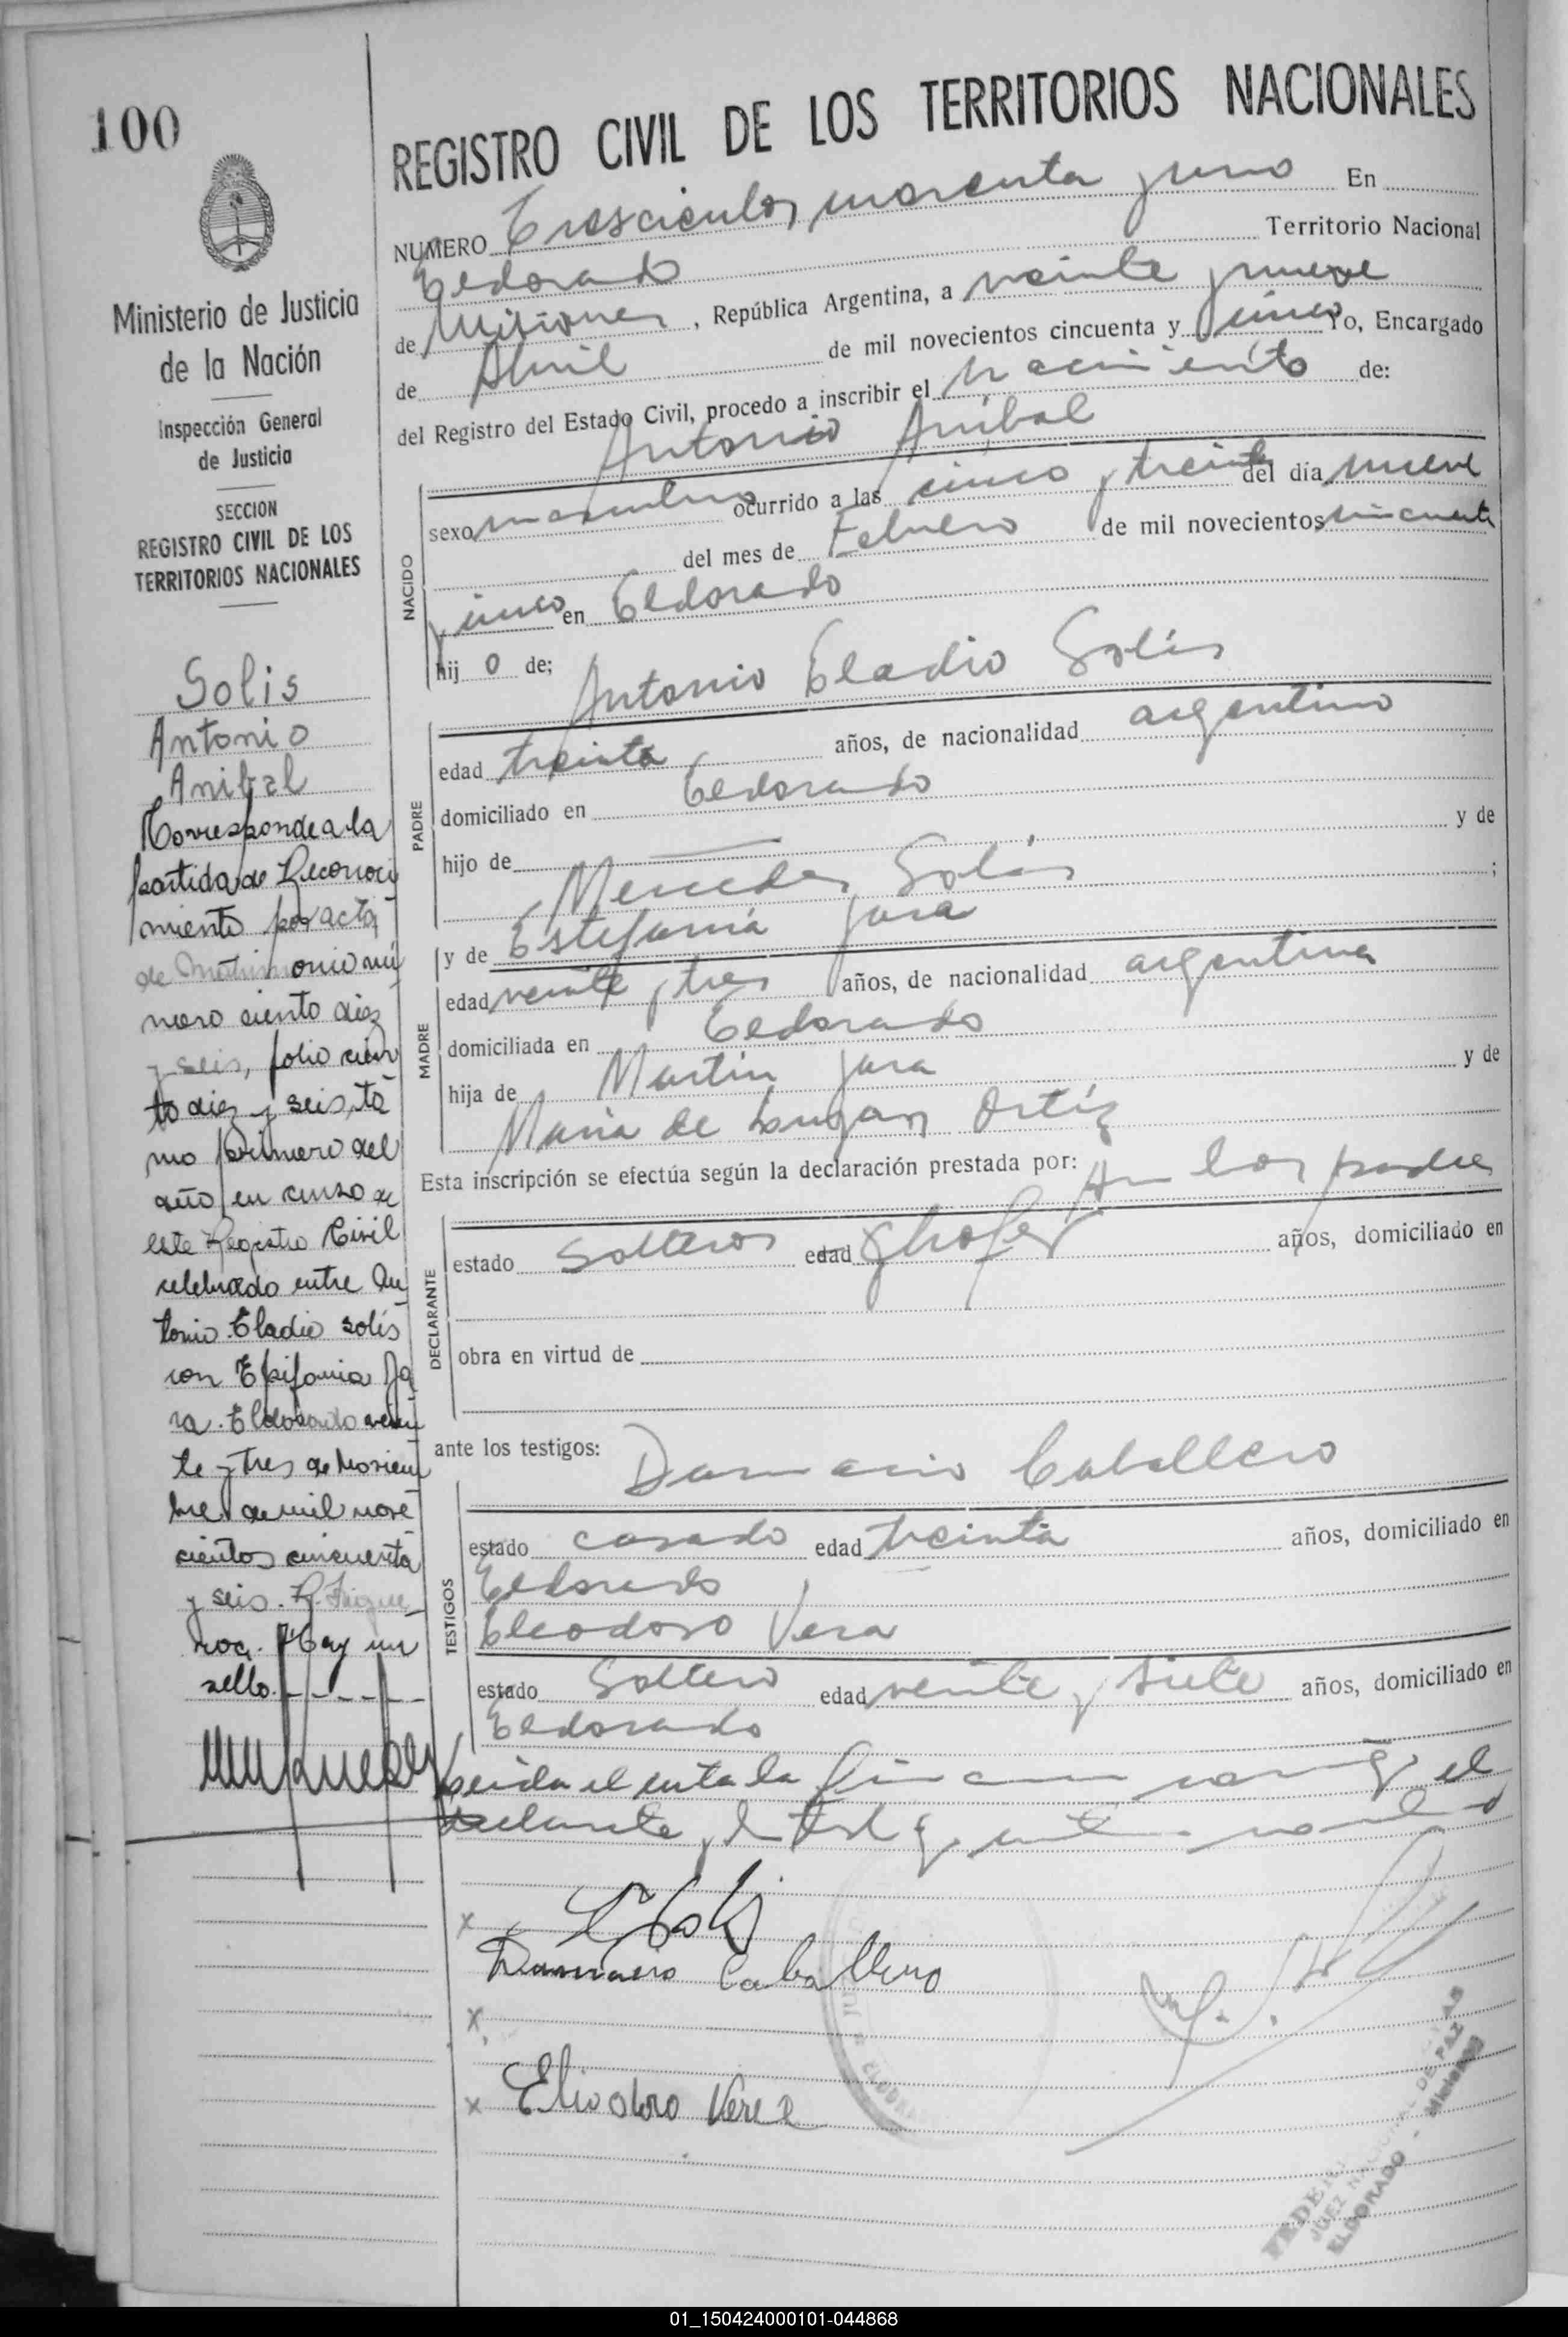 100
Ministerio de Justicia
de la Nación
Inspección General
de Justicia
SECCION
REGISTRO CIVIL DE LOS
TERRITORIOS NACIONALES
Solis
Antonio
Anibal
Corresponde a la
partida de Reconoci
miento por acta
de Matrimonio nú
mero ciento diez
y seis, folio cien
to diez y seis, to
mo primero del
año en curso de
este Registro Civil
celebrado entre An
tonio Eladio Solis
con Epifania Ja
ra. Eldorado vein
te y tres de Noviem
bre de mil nove
cientos cincuenta
y seis. R. Figue
roa. Hay un
sello.
REGISTRO CIVIL DE LOS TERRITORIOS NACIONALES
NUMERO Trescientos noventa y uno En
Eldorado Territorio Nacional
de Misiones, República Argentina, a veinte y nueve
de Abril de mil novecientos cincuenta y cinco Yo, Encargado
del Registro del Estado Civil, procedo a inscribir el nacimiento de:
Antonio Anibal
NACIDO
sexo masculino ocurrido a las cinco y treinta del día nueve
del mes de Febrero de mil novecientos cincuenta
y cinco en Eldorado
hij o de;
Antonio Eladio Solis
PADRE
edad treinta años, de nacionalidad argentino
domiciliado en Eldorado
hijo de y de
Mercedes Solis ;
y de Estefania Jara
MADRE
edad veinte y tres años, de nacionalidad argentina
domiciliada en Eldorado
hija de Martin Jara y de
Maria de Lujan Ortiz
Esta inscripción se efectúa según la declaración prestada por: los padres
DECLARANTE
estado Solteros edad Chofer años, domiciliado en
obra en virtud de
ante los testigos: Damacio Caballero
TESTIGOS
estado casado edad treinta años, domiciliado en
Eldorado
Eleodoro Vera
estado Soltero edad veinte y siete años, domiciliado en
Eldorado
Leida el acta la firman conmigo el
declarante y
x
Damacio Caballero
x
x Eliodoro Vera
JUEZ NACIONAL DE PAZ
ELDORADO - Misiones
01_150424000101-044868